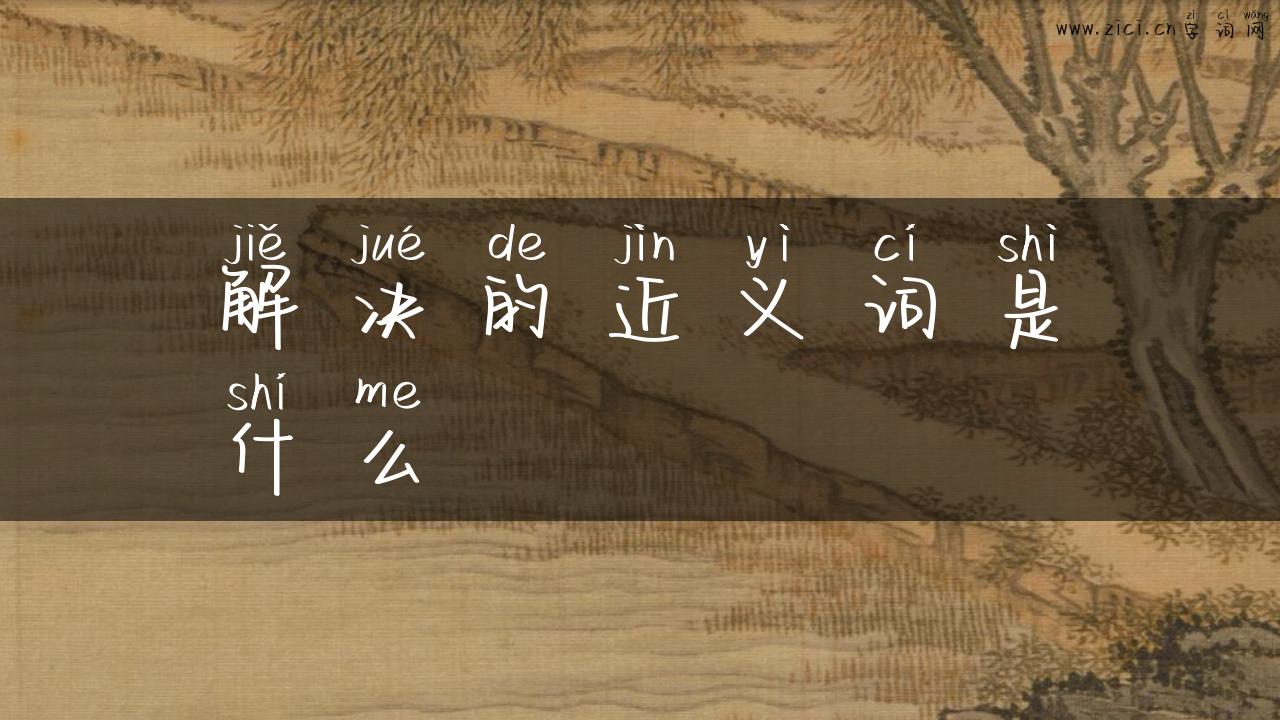 zì cí wǎng
www.zici.cn字词网
jiě jué de jìn yì cí shì
解决的近义词是
shí me
什么